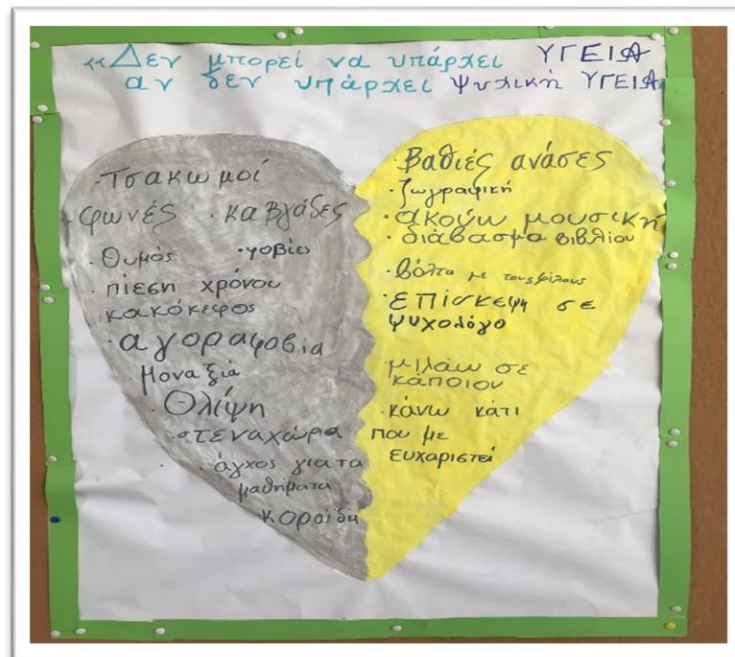 «Δεν μπορεί να υπάρχει ΥΓΕΙΑ
αν δεν υπάρχει ψυχική ΥΓΕΙΑ
·Τσακωμοί
·φωνές ·καβγάδες
·θυμός ·φοβίες
·πίεση χρόνου
·κακόκεφος
·αγοραφοβια
·Μοναξιά
·Θλίψη
·στεναχώρια
·άγχος για τα
μαθήματα
·κοροϊδι
·Βαθιές ανάσες
·ζωγραφική
·ακούω μουσική
·διάβασμα βιβλίου
·βόλτα με τους φίλους
·επίσκεψη σε
ψυχολόγο
·μιλάω σε
κάποιον
·κάνω κάτι
που με
ευχαριστεί